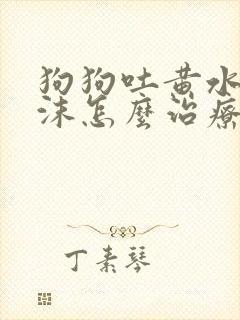 狗狗吐黄水
沫怎麼治療
丁素琴